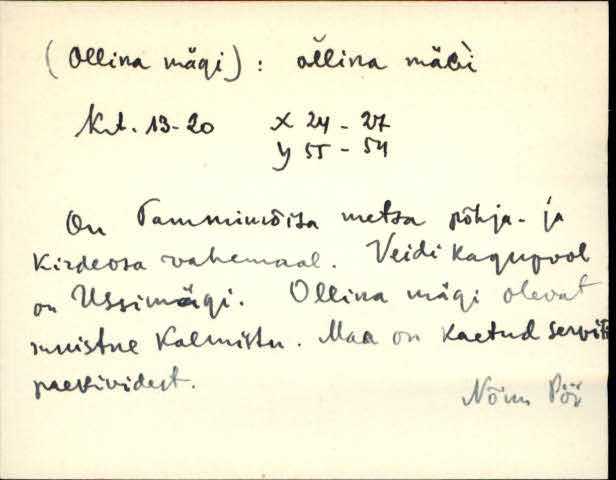 (Ollina mägi) : ol̆lina mäGi
Krt. 13-20 X 24 - 27
y 55 - 54
On Tammimõisa metsa põhja- ja
Kirdeosa vahemaal. Veidi kagupool
on Ussimägi. Ollina mägi olevat
muistne Kalmistu. Maa on kaetud serviti
paekividest.
Nõm Pöi